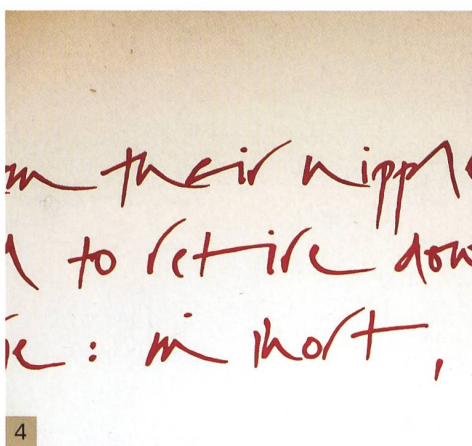 their nipple
to retire dow
: in short,
4